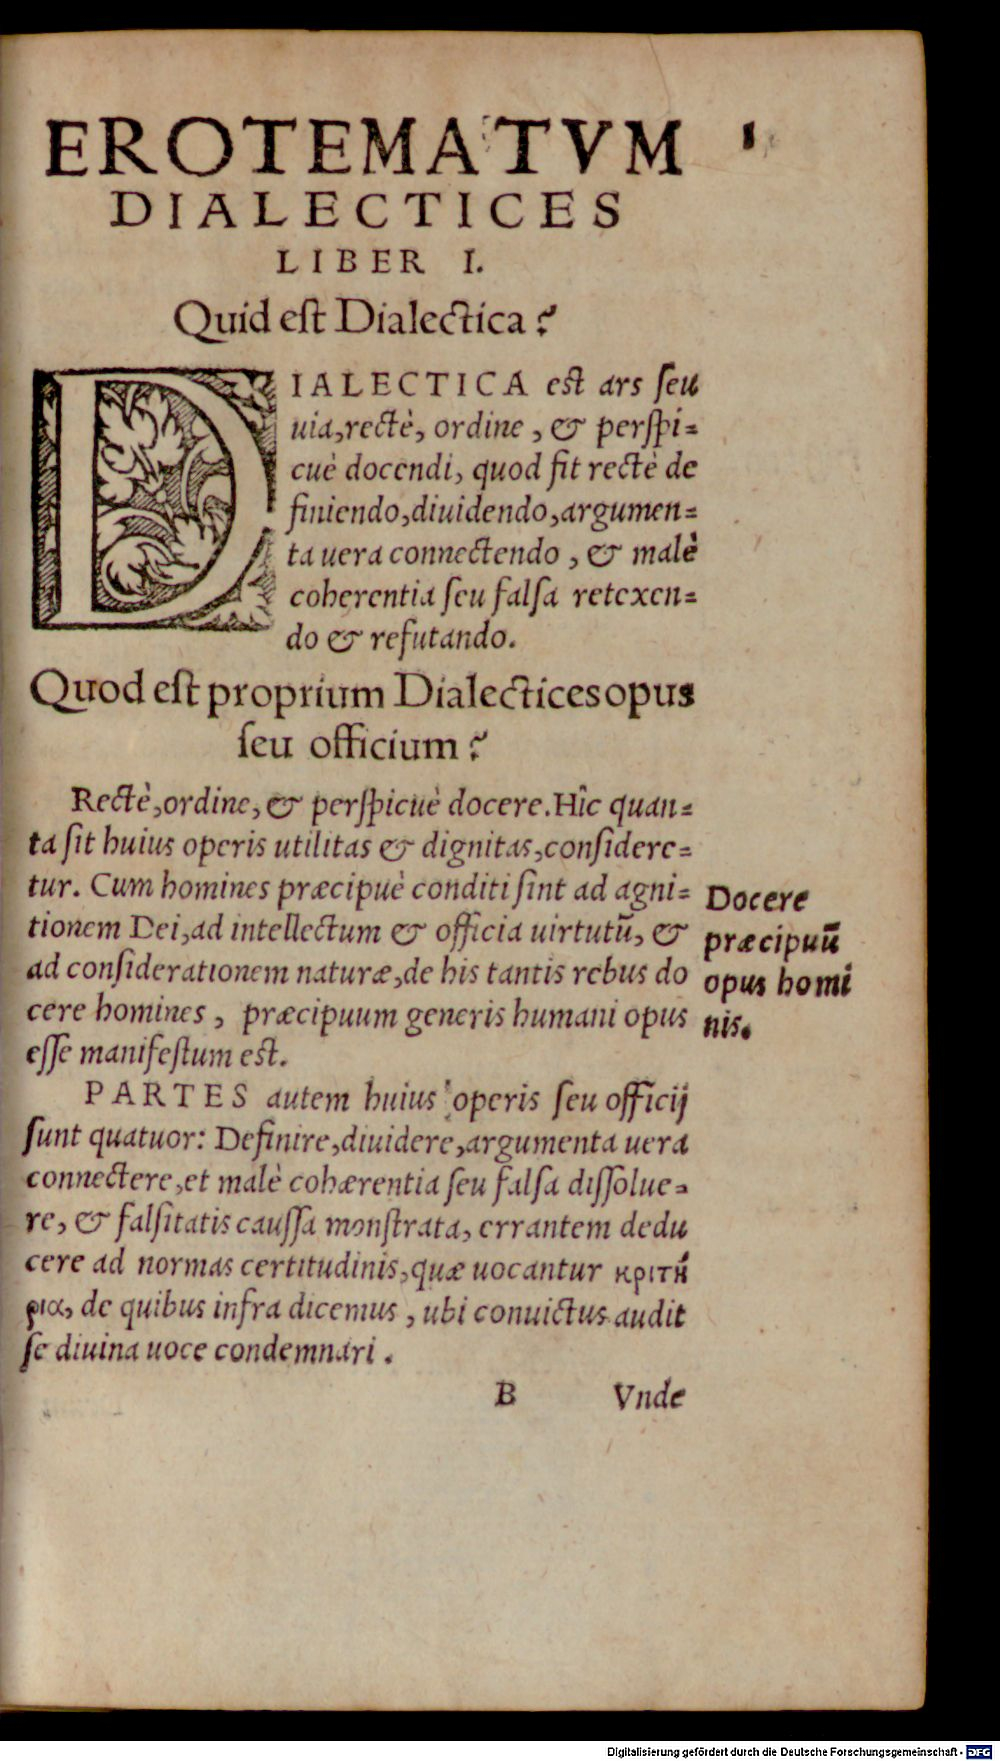 EROTEMATVM 1
DIALECTICES
LIBER I.
Quid est Dialectica?
DIALECTICA est ars seu
uia, rectè, ordine, & perspi=
cuè docendi, quod fit rectè de
finiendo, diuidendo, argumen=
ta uera connectendo, & malè
coherentia seu falsa retexen=
do & refutando.
Quod est proprium Dialectices opus
seu officium?
Rectè, ordine, & perspicuè docere. Hîc quan=
ta sit huius operis utilitas & dignitas, considere=
tur. Cum homines præcipuè conditi sint ad agni=
tionem Dei, ad intellectum & officia uirtutū, &
ad considerationem naturæ, de his tantis rebus do
cere homines, præcipuum generis humani opus
esse manifestum est.
Docere
præcipuū
opus homi
nis.
PARTES autem huius operis seu officij
sunt quatuor: Definire, diuidere, argumenta uera
connectere, et malè cohærentia seu falsa dissolue=
re, & falsitatis caussa monstrata, errantem dedu
cere ad normas certitudinis, quæ uocantur κριτή
ρια, de quibus infra dicemus, ubi conuictus audit
se diuina uoce condemnari.
B Vnde
Digitalisierung gefördert durch die Deutsche Forschungsgemeinschaft - DFG